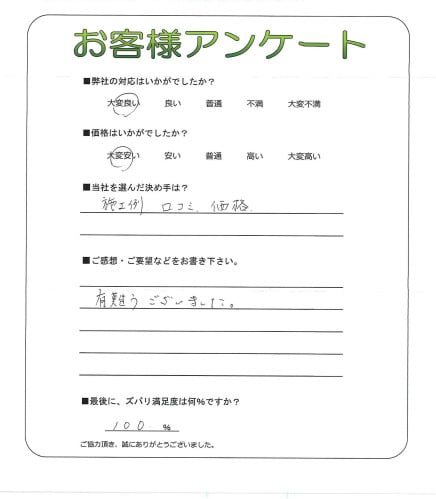 お客様アンケート
■弊社の対応はいかがでしたか？
大変良い 良い 普通 不満 大変不満
■価格はいかがでしたか？
大変安い 安い 普通 高い 大変高い
■当社を選んだ決め手は？
施工例 口コミ、価格
■ご感想・ご要望などをお書き下さい。
有難うございました。
■最後に、ズバリ満足度は何％ですか？
100 ％
ご協力頂き、誠にありがとうございました。